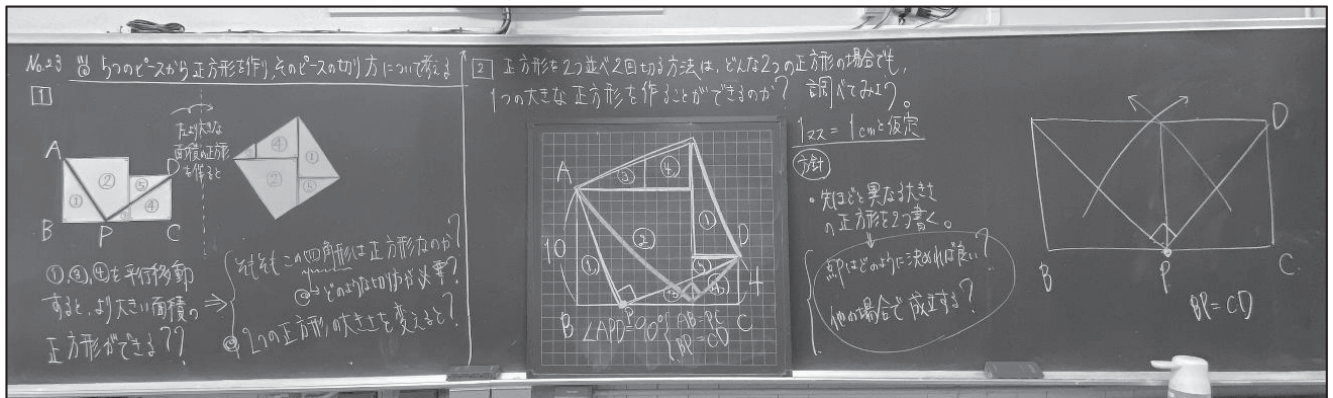 No.23 ◎ 5つのピースから正方形を作り、そのピースの切り方について考える
1
たより大きな
面積の正方形
を作ると
A
D
①
②
③
⑤
④
B
P
C
④
①
②
⑤
①,③,④を平行移動
すると、より大きい面積の
正方形ができる??
⇒
そもそもこの四角形は正方形なのか?
どのような切り方が必要?
2つの正方形の大きさを変えると?
2 正方形を2つ並べ2回切る方法は、どんな2つの正方形の場合でも、
1つの大きな正方形を作ることができるのか? 調べてみよう。
A
③
④
①
②
D
10
①
⑤
③
④
4
B
P
C
∠APD=90°
AB=PC
BP=CD
1マス=1cmと仮定
方針
・先ほどと異なる大きさ
の正方形を2つ書く。
点Pはどのように決めれば良い?
他の場合で成立する?
D
B
P
C
BP=CD